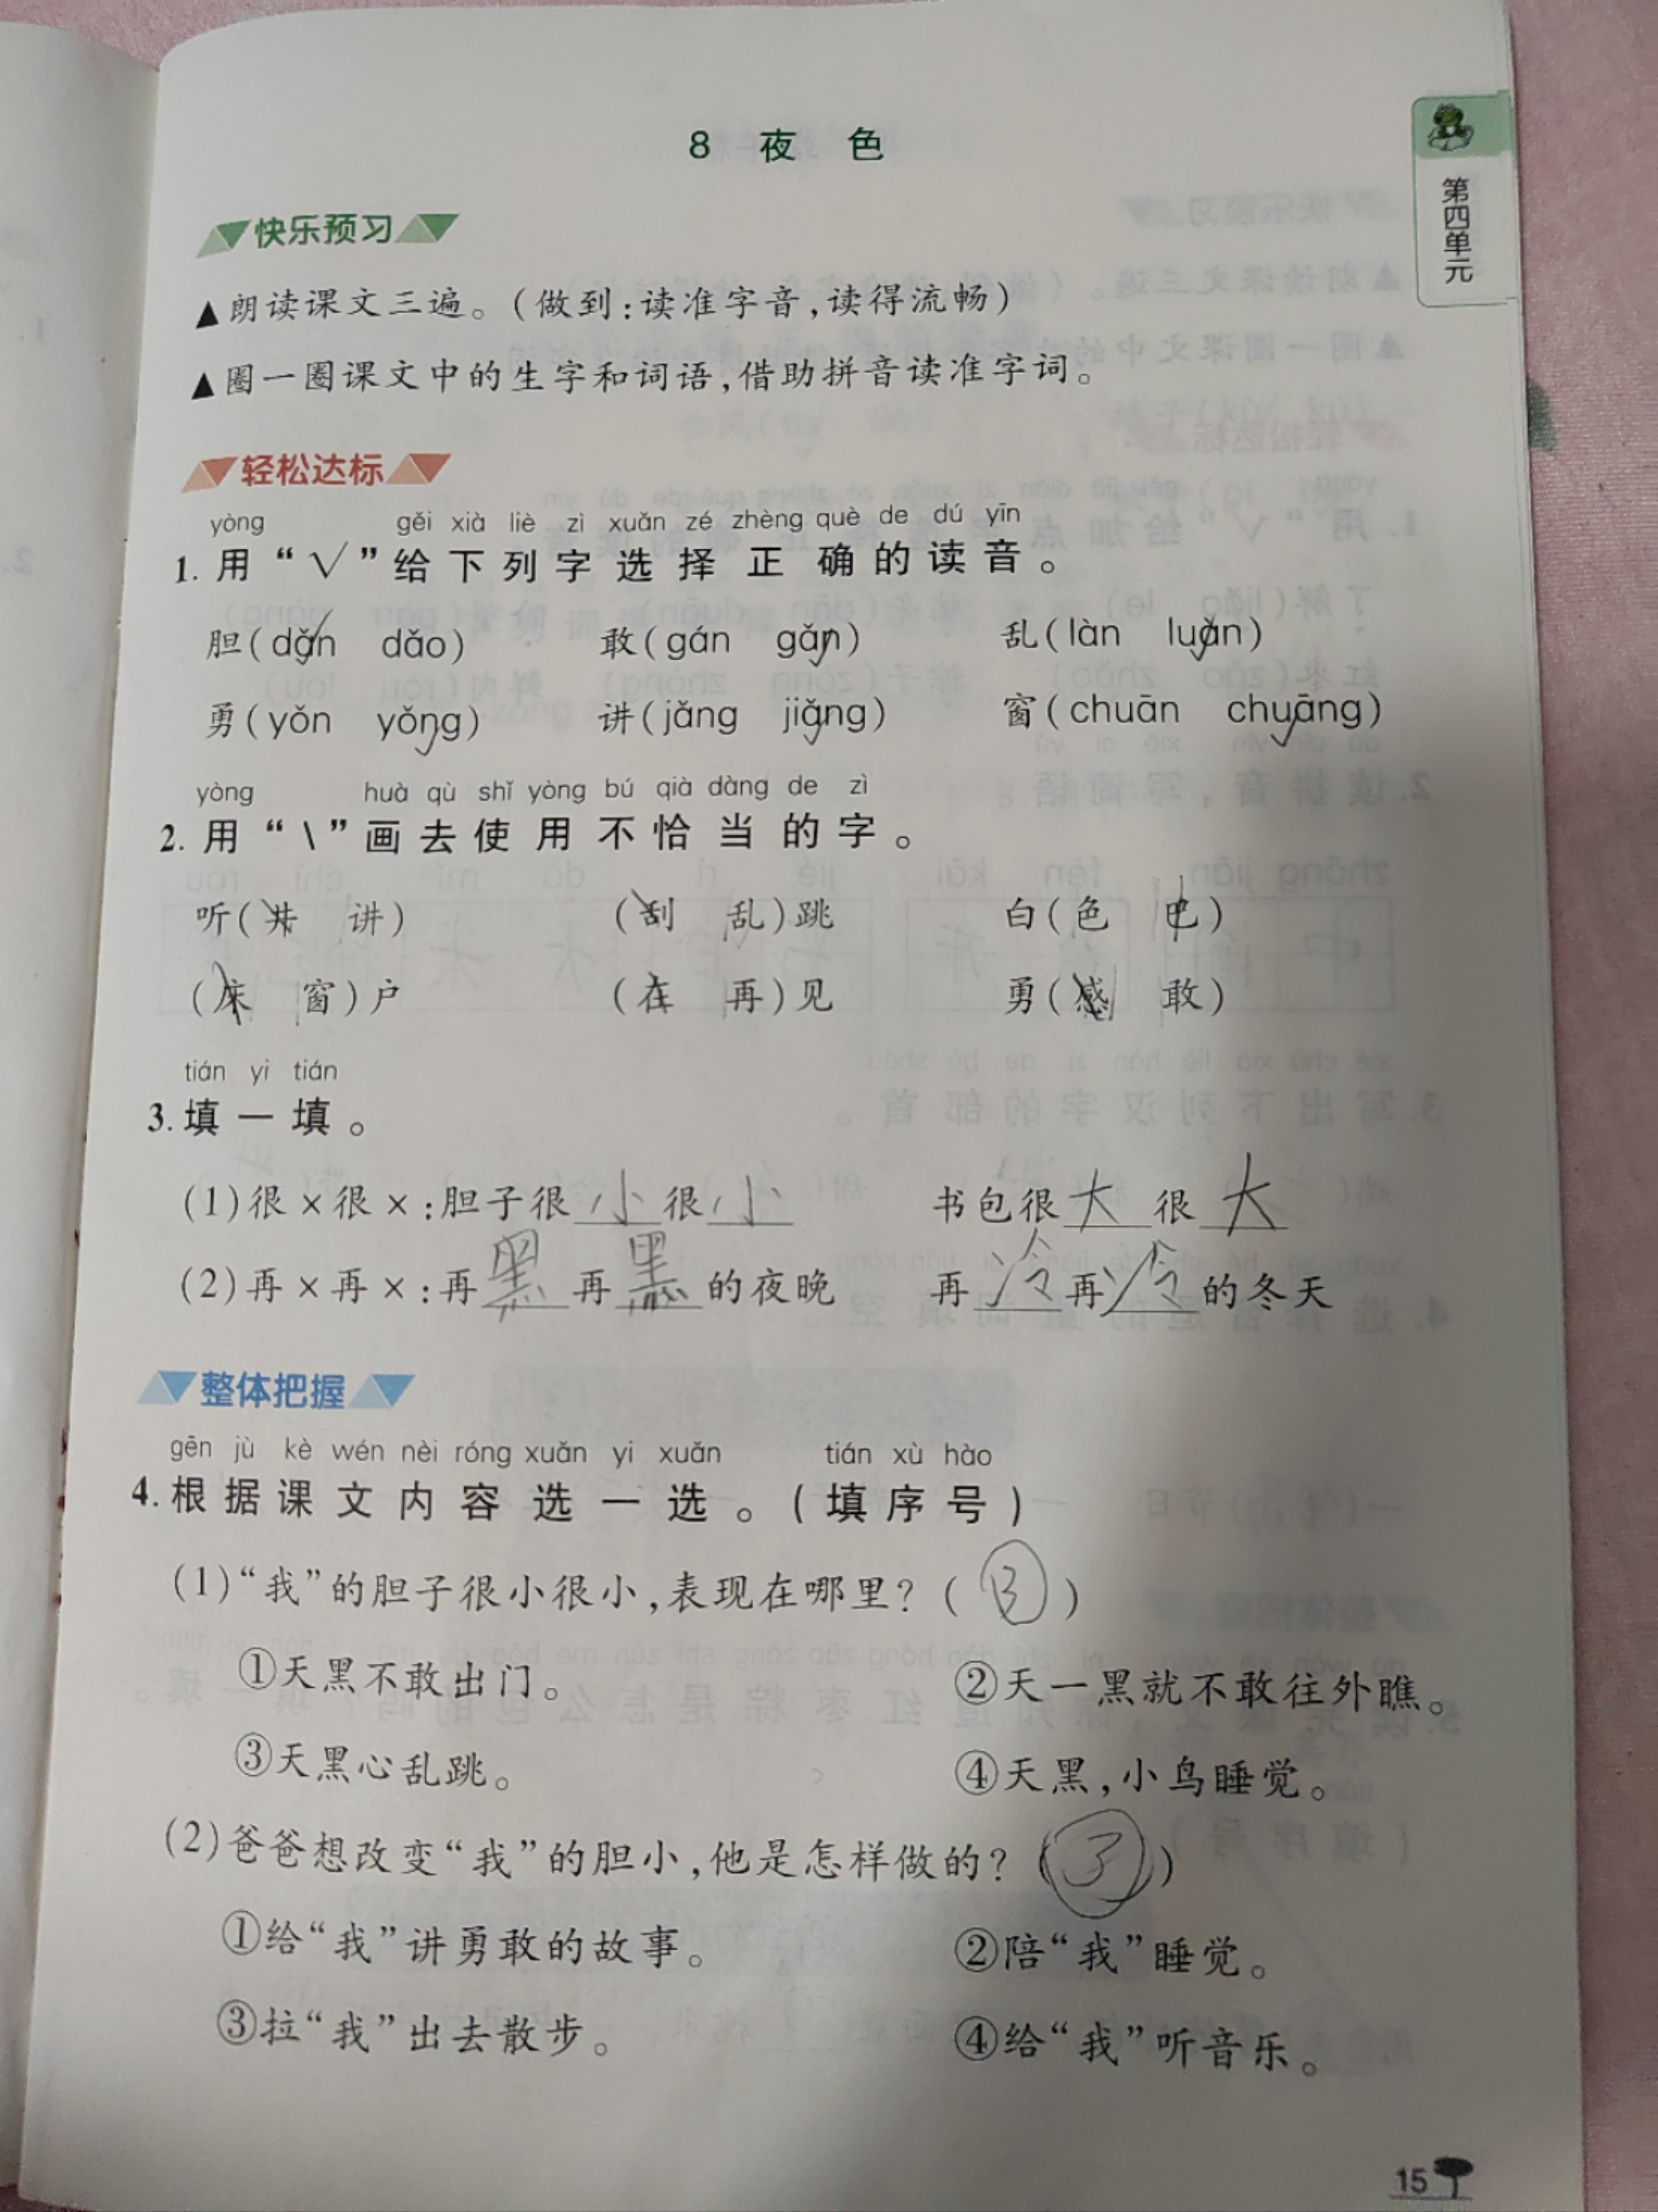 8 夜 色
第四单元
快乐预习
▲朗读课文三遍。(做到:读准字音,读得流畅)
▲圈一圈课文中的生字和词语,借助拼音读准字词。
轻松达标
yòng gěi xià liè zì xuǎn zé zhèng què de dú yīn
1. 用“√”给下列字选择正确的读音。
胆(dǎn dǎo) 敢(gán gǎn) 乱(làn luàn)
勇(yǒn yǒng) 讲(jǎng jiǎng) 窗(chuān chuāng)
yòng huà qù shǐ yòng bú qià dàng de zì
2. 用“\”画去使用不恰当的字。
听(井 讲) (刮 乱)跳 白(色 巴)
(床 窗)户 (在 再)见 勇(感 敢)
tián yi tián
3. 填一填。
(1)很×很×:胆子很小很小 书包很大很大
(2)再×再×:再黑再黑的夜晚 再冷再冷的冬天
整体把握
gēn jù kè wén nèi róng xuǎn yi xuǎn tián xù hào
4. 根据课文内容选一选。(填序号)
(1)“我”的胆子很小很小,表现在哪里?(③)
①天黑不敢出门。 ②天一黑就不敢往外瞧。
③天黑心乱跳。 ④天黑,小鸟睡觉。
(2)爸爸想改变“我”的胆小,他是怎样做的?(③)
①给“我”讲勇敢的故事。 ②陪“我”睡觉。
③拉“我”出去散步。 ④给“我”听音乐。
15